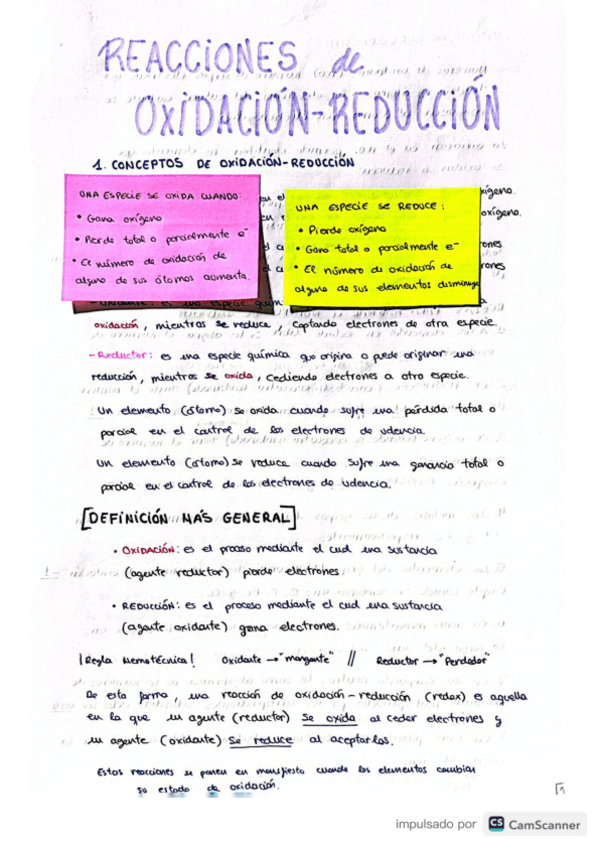 REACCIONES de
OXIDACIÓN-REDUCCIÓN
1. CONCEPTOS DE OXIDACIÓN-REDUCCIÓN
UNA ESPECIE SE OXIDA CUANDO:
• Gana oxígeno
• Pierde total o parcialmente e-
• El número de oxidación de
alguno de sus átomos aumenta.
UNA ESPECIE SE REDUCE:
• Pierde oxígeno
• Gana total o parcialmente e-
• El número de oxidación de
alguno de sus elementos disminuye
oxígeno.
oxidación, mientras se reduce, captando electrones de otra especie.
- Reductor: es una especie química que origina o puede originar una
reducción, mientras se oxida, cediendo electrones a otra especie.
Un elemento (átomo) se oxida cuando sufre una pérdida total o
parcial en el control de los electrones de valencia.
Un elemento (átomo) se reduce cuando sufre una ganancia total o
parcial en el control de los electrones de valencia.
[DEFINICIÓN MÁS GENERAL]
• OXIDACIÓN: es el proceso mediante el cual una sustancia
(agente reductor) pierde electrones
• REDUCCIÓN: es el proceso mediante el cual una sustancia
(agente oxidante) gana electrones.
¡Regla nemotécnica! Oxidante → "mangante" // Reductor → "Perdedor"
De esta forma, una reacción de oxidación-reducción (redox) es aquella
en la que un agente (reductor) se oxida al ceder electrones y
un agente (oxidante) se reduce al aceptarlos.
Estas reacciones se ponen en manifiesto cuando los elementos cambian
su estado de oxidación.
1
impulsado por CS CamScanner